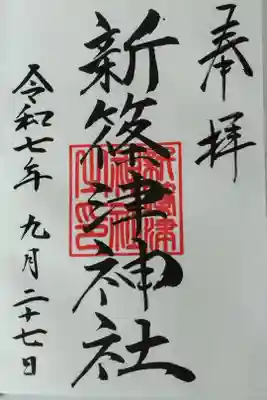 奉拝
新篠津神社
令和七年 九月 二十七日